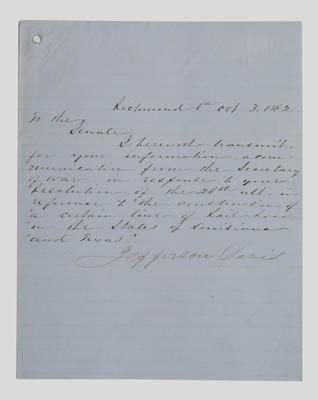 Richmond Va Oct. 3. 1862.
To the
Senate,
I herewith transmit
for your information a com
munication from the Secretary
of War in response to your
Resolution of the 26th ult. in
reference to "the construction of
"a certain line of Rail Road
"in the States of Louisiana
"and Texas."
Jefferson Davis